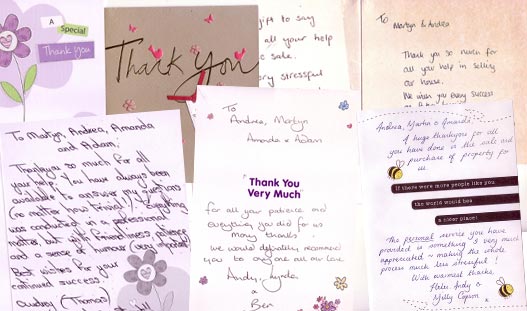 A
Special
Thank you
Thank You
gift to say
all your help
sale.
very stressful
To
Martyn & Andrea
Thank you so much for
all your help in selling
our house.
We wish you every success
To Martyn, Andrea, Amanda
and Adam,
Thankyou so much for all
your help. You have always been
available to answer my questions
(no matter how trivial!) Everything
was conducted in a professional
matter, but with friendliness, please
and a sense of humour (very important)
Best wishes for your
continued success.
Audrey (Thomas)
To
Andrea, Martyn
Amanda & Adam
Thank You
Very Much
for all your patience and
everything you did for us
many thanks
we would definitely recommend
you to any one all our love
Andy, Lynda
&
Ben
Andrea, Martin & Amanda,
A huge thankyou for all
you have done in the sale and
purchase of property for
us.
If there were more people like you
the world would be a
nicer place!
The personal service you have
provided is something I very much
appreciated - making the whole
process much less stressful!
With warmest thanks,
Helen, Andy &
Milly